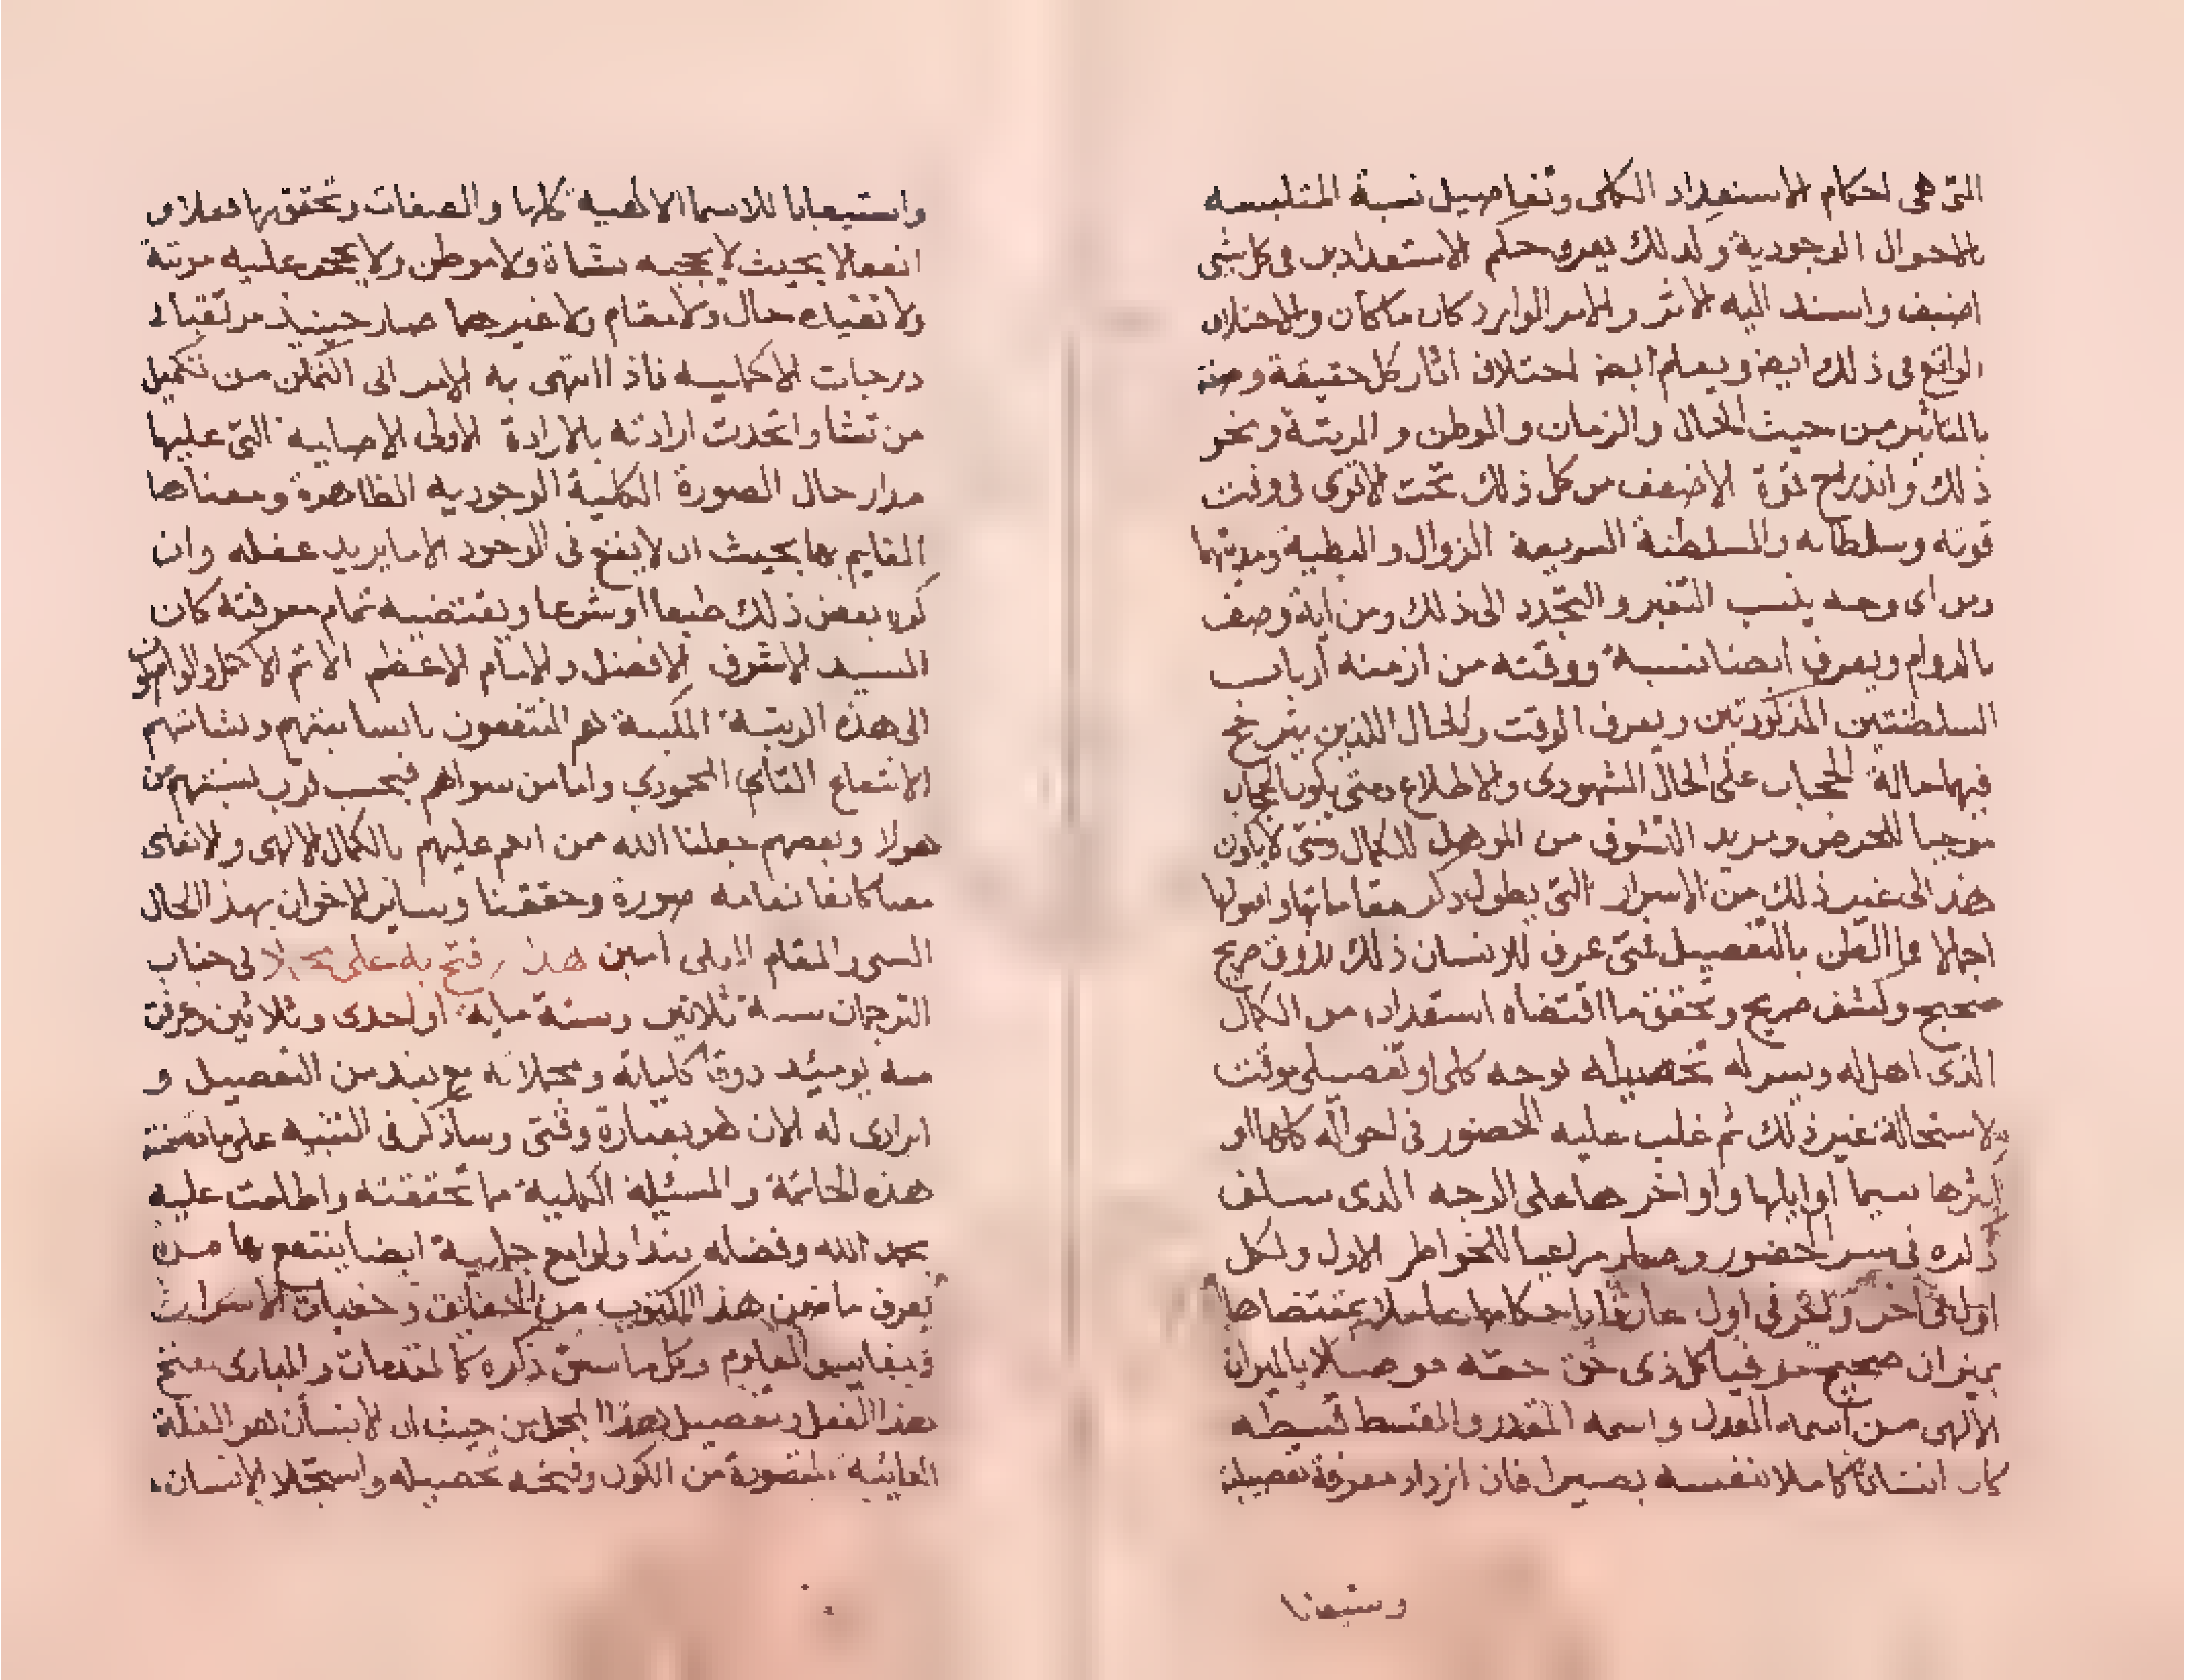 التى هى احكام الاستعداد الكلى وتفاصيل نسبة المتلبسه
بالاحوال الوجودية ولذلك يعرف حكم الاستعدادين فى كل شى
اضيف واسند اليه الاثر والامر الوارد كان ما كان والاختلاف
الواقع فى ذلك ايضا ويعلم ايضا اختلاف اثار كل حقيقة وصفة
بالتاثير من حيث الحال والزمان والموطن والمرتبة ونحو
ذلك واندراج قوة الاضعف من كل ذلك تحت الاقوى فى وقت
قوته وسلطانه والسلطنة السريعة الزوال والبطية ومدتهما
ومن اى وجه ينسب التغير والتجدد الى ذلك ومن اية وصف
بالدوام ويعرف ايضا نسبة ووقته من ازمنه ارباب
السلطنتين المذكورتين ويعرف الوقت والحال اللذين يترجح
فيهما حالة الحجاب على الحال الشهودى والاطلاع ومتى يكون الحجاب
موجبا للحرص ومزيد التشوف من الموهل للكمال ومتى لا يكون
هذا الى غير ذلك من الاسرار التى يطول ذكر مقاماتها واصولها
اجمالا فما الظن بالتفصيل فمتى عرف الانسان ذلك بذوق صريح
صحيح وكشف صريح وتحقق ما اقتضاه استعداده من الكمال
الذى اهل له ويسر له تحصيله بوجه كلى او تفصيلى موقت
لاستحالة غير ذلك ثم غلب عليه الحضور فى احواله كلها او
اكثرها سيما اوايلها واواخرها على الوجه الذى سلف
ذكره فى سر الحضور وصار مراعيا للخواطر الاول ولكل
اول فى اخر واخر فى اول عارفا باحكامها عاملا بمقتضاها
بميزان صحيح موفيا كل ذى حق حقه موصلا بالميزان
الالهى من اسمه العدل واسمه المقدر والمقسط قسطه
كان انسانا كاملا بنفسه بصيرا فان ازداد معرفة تفصيلية
وستيعابا
واستيعابا للاسما الالهية كلها والصفات وتحقق بها فعلا و
انفعالا بحيث لا يحجبه نشاة ولا موطن ولا يحجر عليه مرتبة
ولا تقيده حال ولا مقام ولا غيرهما صار حينيذ مرتقيا فى
درجات الاكملية فاذا انتهى به الامر الى التمكن من تكميل
من شا واتحدت ارادته بالارادة الاولى الاصلية التى عليها
مدار حال الصورة الكلية الوجودية الظاهرة ومعناها
القايم بها بحيث ان لا يقع فى الوجود الا ما يريد عقله وان
كره بعض ذلك طبعا او شرعا ويقتضيه تمام معرفته كان
السيد الاشرف الافضل والامام الاعظم الاتم الاكمل والواصلون
الى هذه الرتبة المكينة هم المنتفعون بانسانيتهم ونشاتهم
الانتفاع التام المحمودي واما من سواهم فبحسب قرب نسبتهم من
هولا وبعدهم جعلنا الله من انعم عليهم بالكمال الالهى والانعام
معنا كانعامه صورة وحققنا وساير الاخوان بهذا الحال
السنى والمقام العلى امين هذا فتح به على مجملا فى جناب
الترجمان سنة ثلاثين وستة ماية او احدى وثلاثين وعرفت
منه يوميد ذوقا كلياته ومجملاته مع نبذ من التفصيل و
ابرادى له الان هو بعبارة وقتى وساذكر فى التنبيه على ما تضمنته
هذه الخاتمة والمسئلة الكلية مما تحققته واطلعت عليه
بحمد الله وفضله نبذا ولوامع جملية ايضا ينتفع بها من
يعرف ما ضمن هذا المكتوب من الحقايق وخفيات الاسرار
ونفايس العلوم وكل ما سبق ذكره كالمقدمات والمبادى
هذا الفصل وتفصيل هذا المجمل من حيث ان الانسان هو العلة
الغائية المقصودة من الكون وفتحه تحصيله واستجلا الانسان